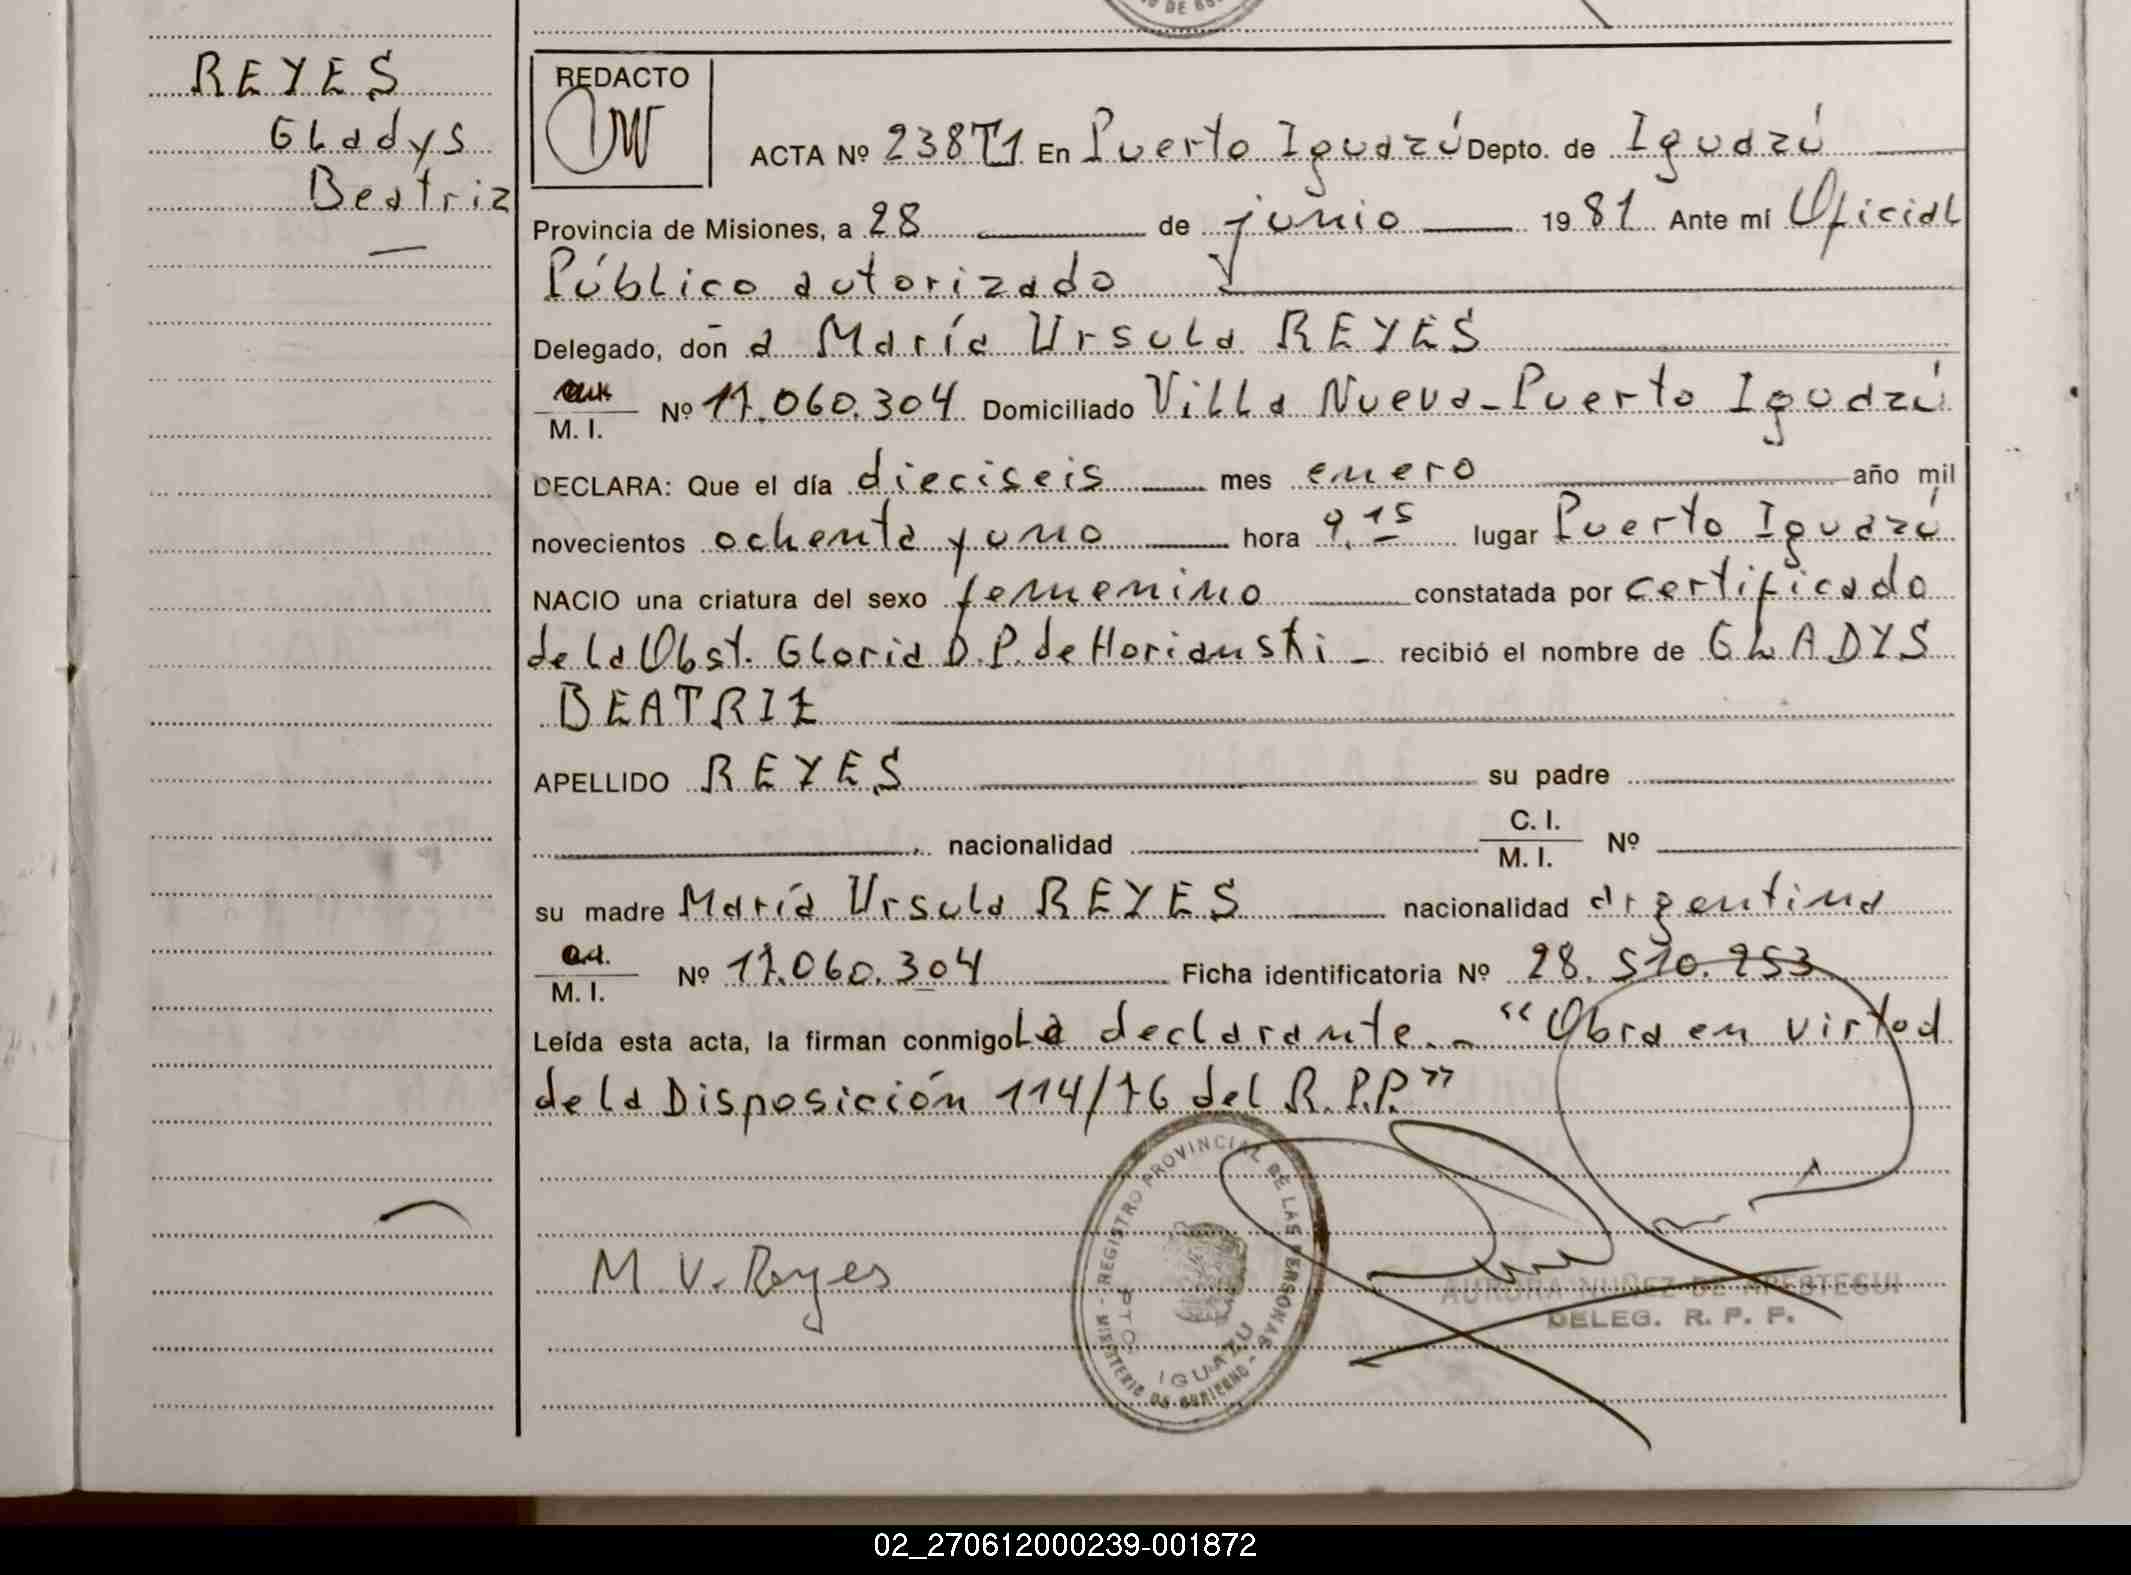 REYES
Gladys
Beatriz
REDACTO
ACTA Nº 238T1 En Puerto Iguazú Depto. de Iguazú
Provincia de Misiones, a 28 de junio 1981 Ante mí Oficial
Público autorizado
Delegado, doña María Ursula REYES
M. I. Nº 17.060.304 Domiciliado Villa Nueva-Puerto Iguazú
DECLARA: Que el día dieciseis mes enero año mil
novecientos ochenta y uno hora 9,15 lugar Puerto Iguazú
NACIO una criatura del sexo femenino constatada por certificado
de la Obst. Gloria D. P. de Horianski - recibió el nombre de GLADYS
BEATRIZ
APELLIDO REYES su padre
nacionalidad C. I. M. I. Nº
su madre María Ursula REYES nacionalidad argentina
M. I. Nº 17.060.304 Ficha identificatoria Nº 28.510.253
Leída esta acta, la firman conmigo la declarante.- "Obra en virtud
de la Disposición 114/76 del R.P.P."
MINISTERIO DE GOBIERNO - REGISTRO PROVINCIAL DE LAS PERSONAS
IGUAZU
M. V. Reyes
AURORA NUÑEZ DE APESTEGUI
DELEG. R. P. P.
02_270612000239-001872